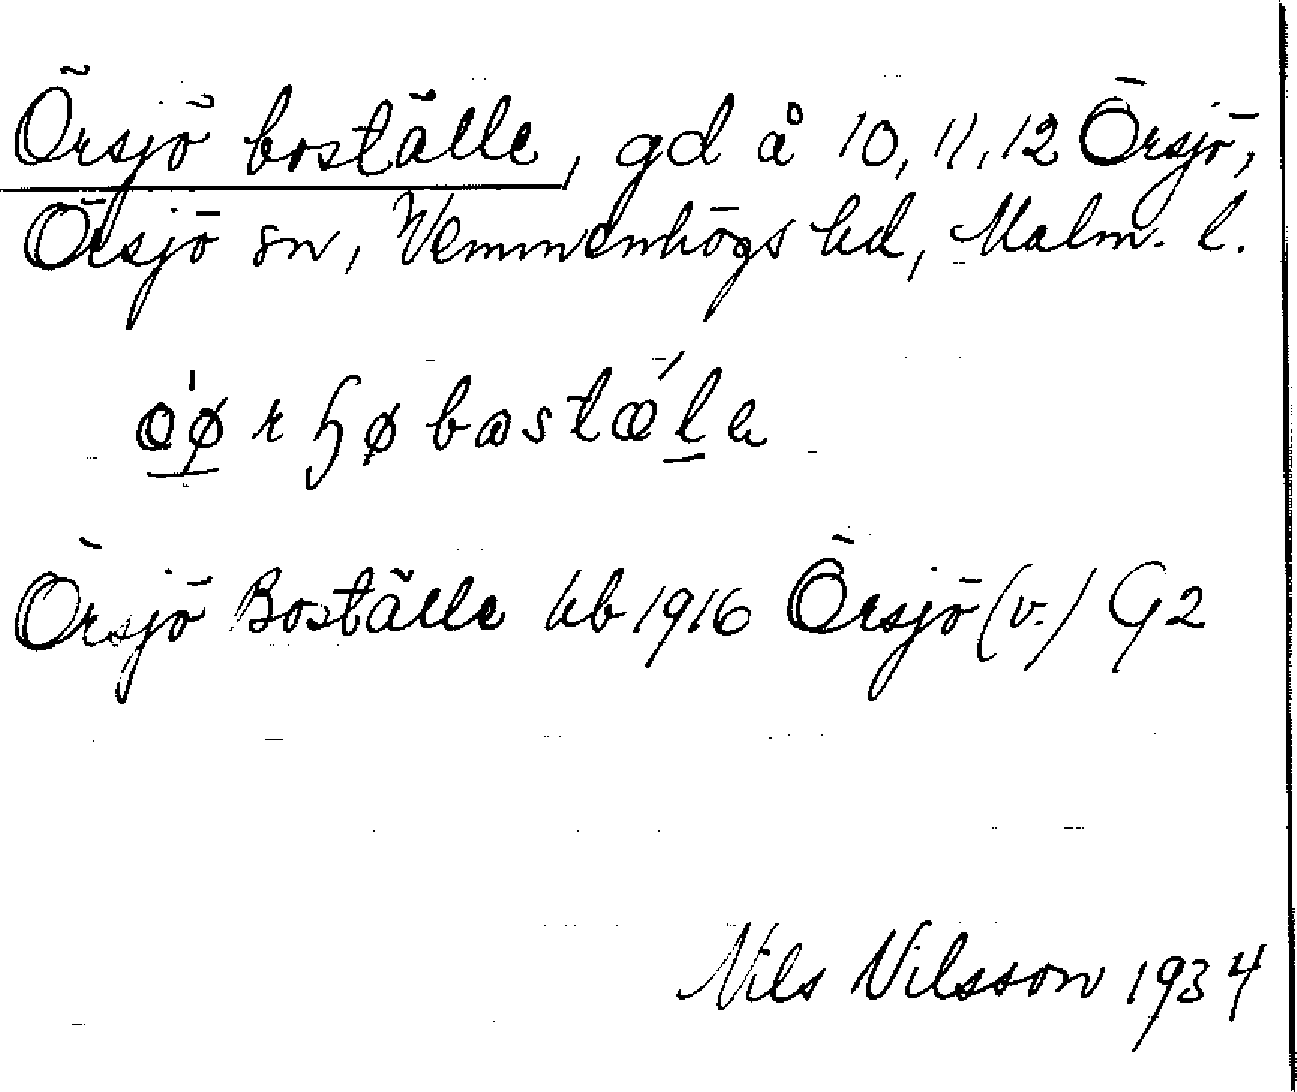 Örsjö boställe, gd å 10, 11, 12 Örsjö,
Örsjö sn, Vemmenhögs hd, Malm. l.
Örsjö Boställe kb 1916 Örsjö (v.) G2
Nils Nilsson 1934